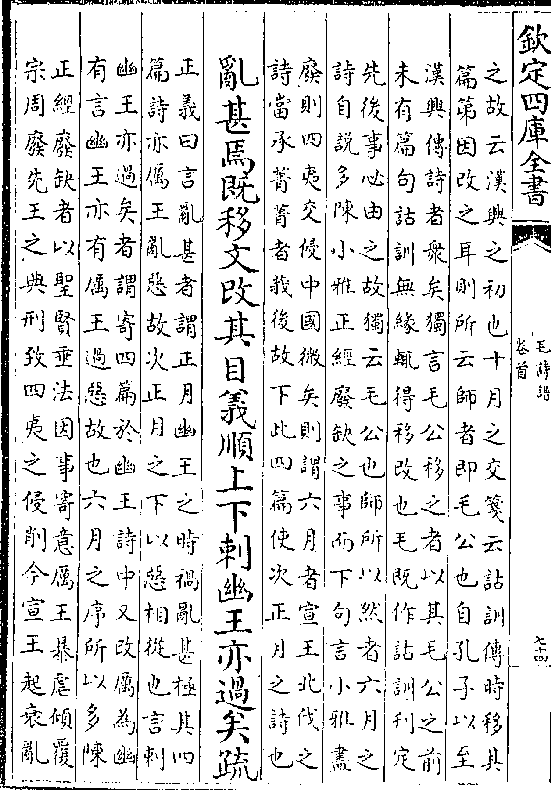 欽定四庫全書
毛詩譜
卷首
七十四
之故云漢興之初也十月之交箋云詁訓傳時移其
篇第因改之耳則所云師者即毛公也自孔子以至
漢興傳詩者衆矣獨言毛公移之者以其毛公之前
未有篇句詁訓無緣輒得移改也毛既作詁訓刋定
先後事必由之故獨云毛公也師所以然者六月之
詩自説多陳小雅正經廢缺之事而下句言小雅盡
廢則四夷交侵中國微矣則謂六月者宣王北伐之
詩當承菁菁者莪後故下此四篇使次正月之詩也
亂甚焉既移文改其目義順上下刺幽王亦過矣疏
正義曰言亂甚者謂正月幽王之時禍亂甚極其四
篇詩亦厲王亂惡故次正月之下以惡相從也言刺
幽王亦過矣者謂寄四篇於幽王詩中又改厲為幽
有言幽王亦有厲王過惡故也六月之序所以多陳
正經廢缺者以聖賢垂法因事寄意厲王暴虐傾覆
宗周廢先王之典刑致四夷之侵削今宣王起衰亂